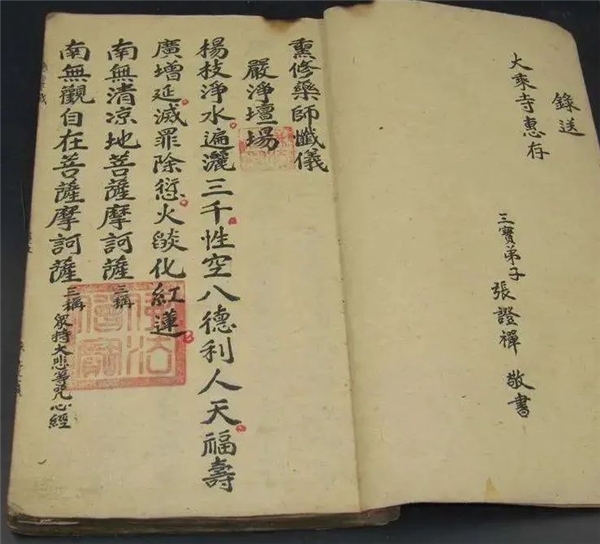 錄送
大乘寺惠存
三寶弟子 張證禪 敬書
熏修藥師懺儀
嚴淨壇場
楊枝淨水遍灑三千性空八德利人天福壽
廣增延滅罪除愆火燄化紅蓮
南無清凉地菩薩摩訶薩 三稱
南無觀自在菩薩摩訶薩 三稱 眾持大悲等咒心經
佛法
僧寶